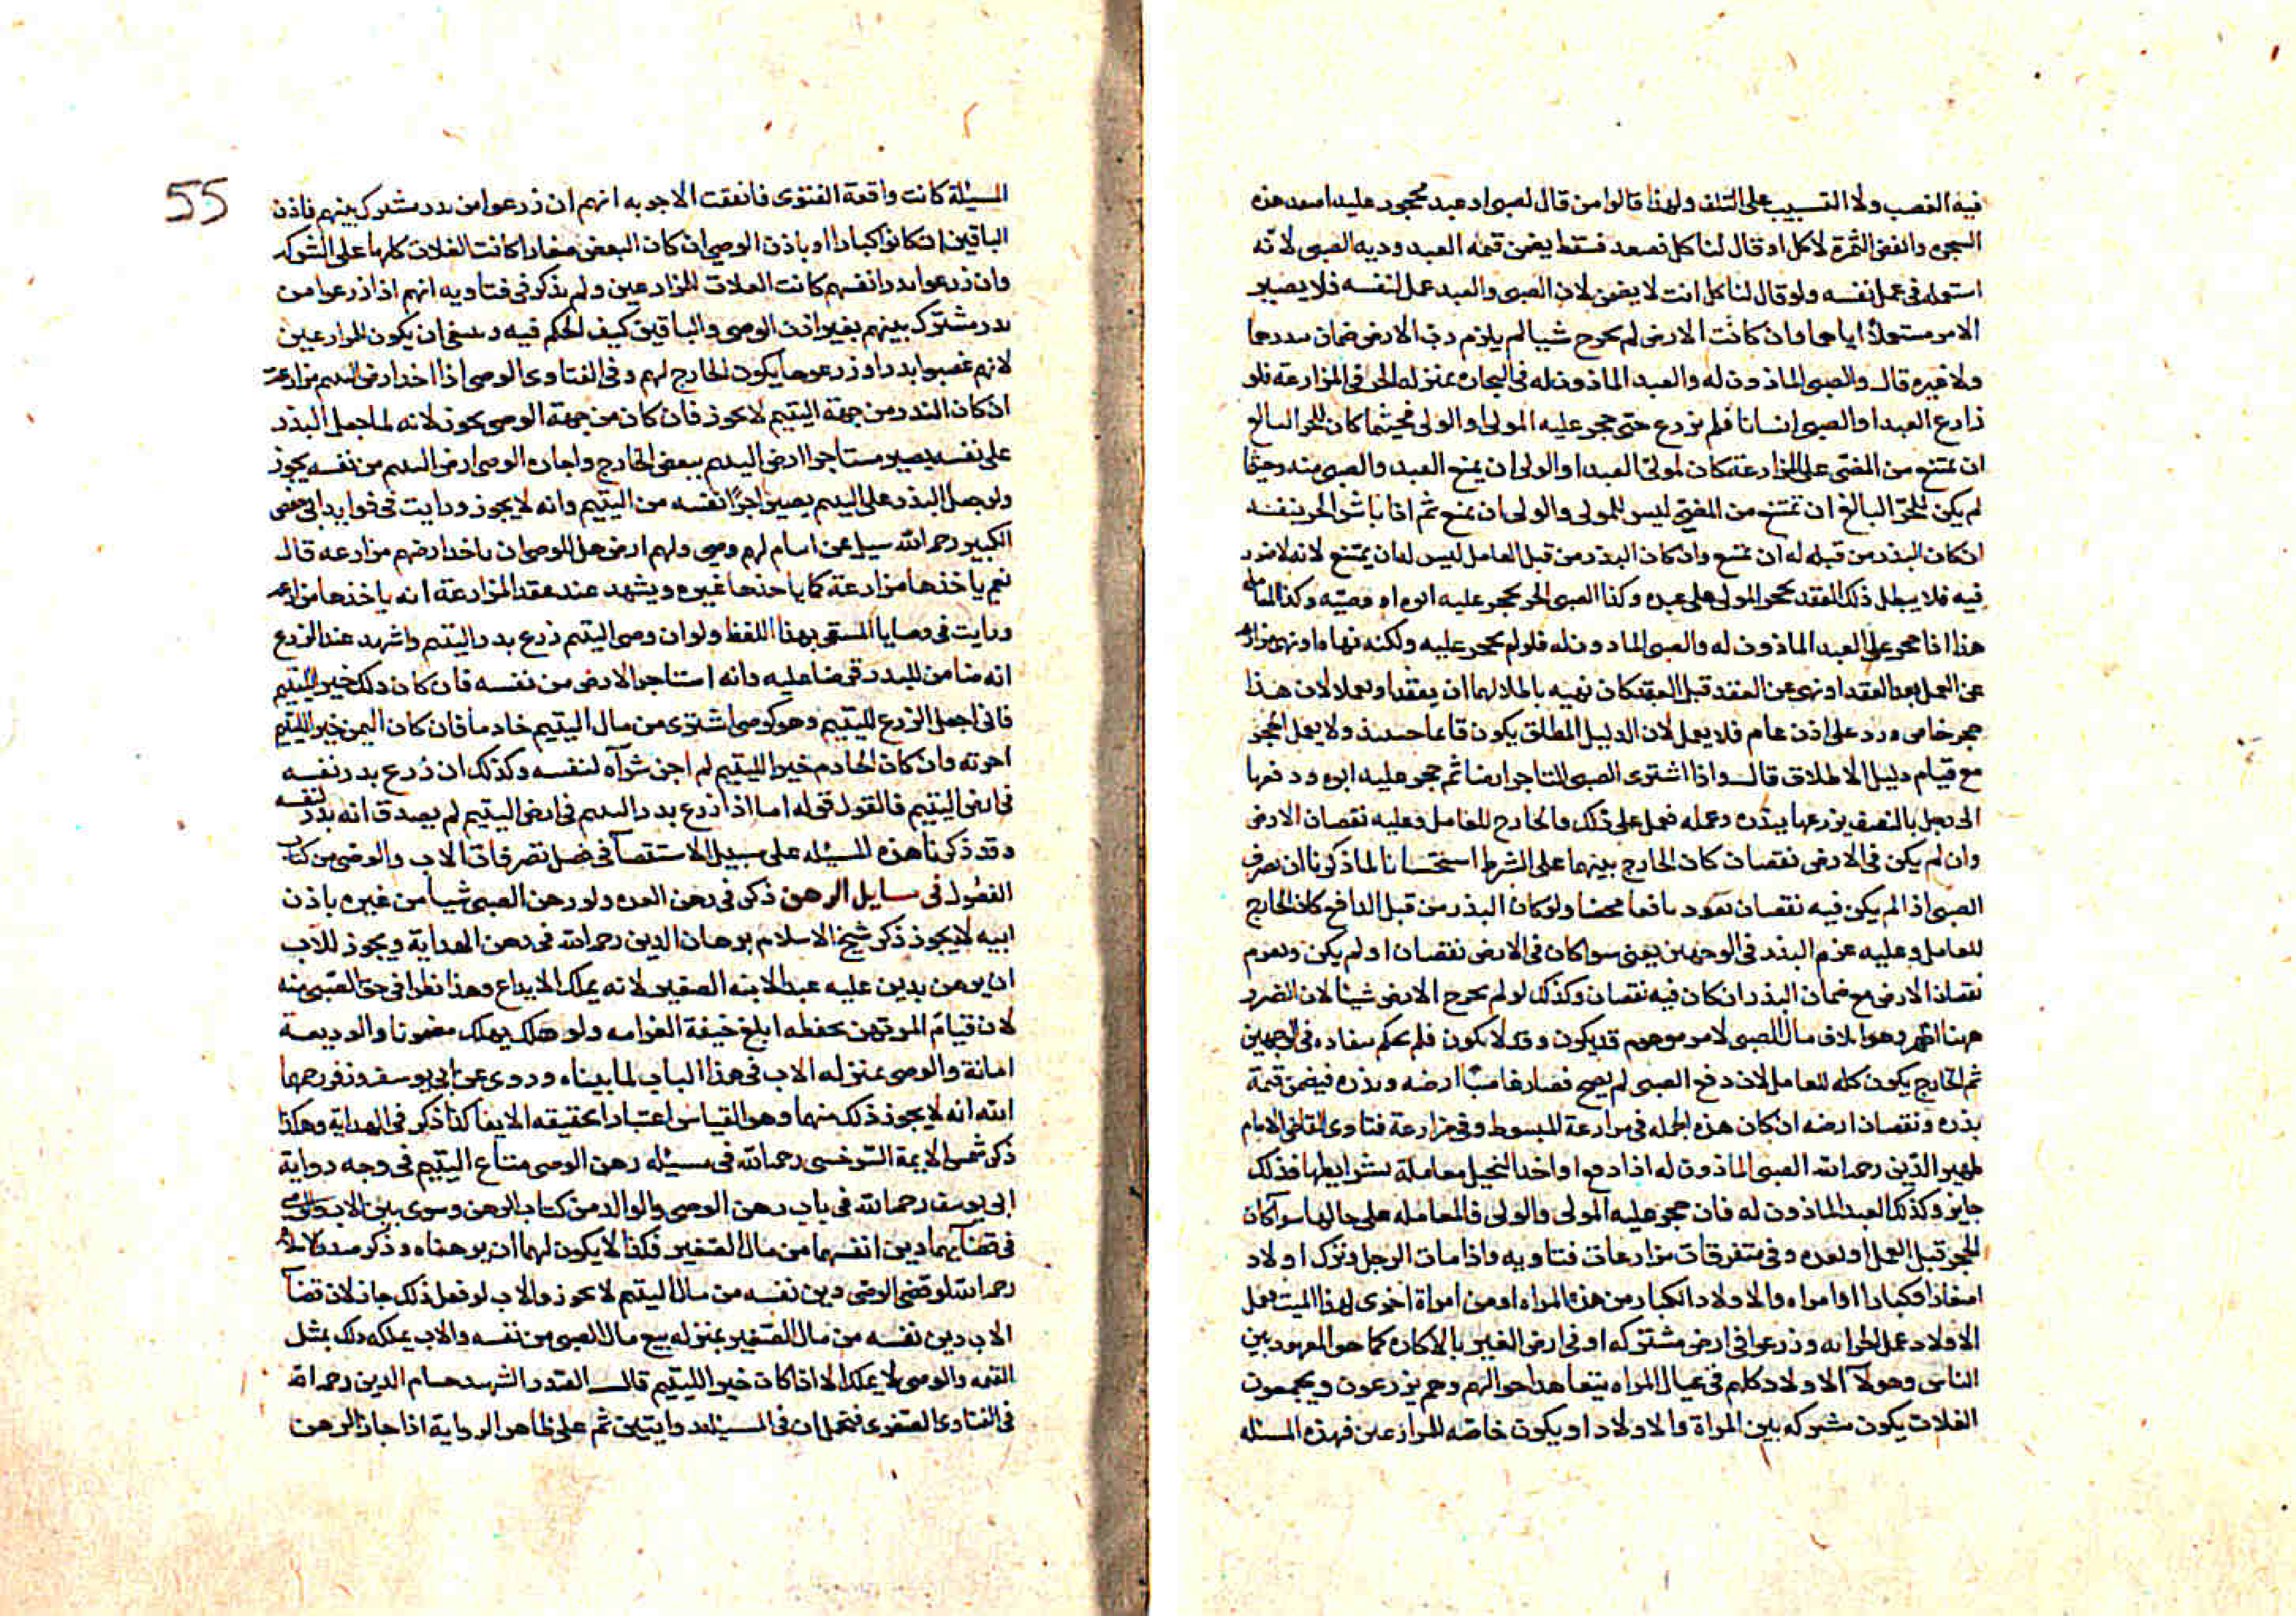 فيه الغصب ولا التسبيب على التلف ولهذا قالوا من قال لصبي او عبد محجور عليه اصعد هذه
الشجرة وانفض الثمرة لاكل او قال لناكل فصعد فسقط يضمن قيمه العبد وديه الصبي لانه
استعمله في عمل نفسه ولو قال لتاكل انت لا يضمن لان الصبي والعبد عمل لنفسه فلا يصير
الامر مستعملا اياهما وان كانت الارض لم تخرج شيا لم يلزم رب الارض ضمان بذرهما
ولا غيره قال والصبي الماذون له والعبد الماذون له في التجاره بمنزله الحر في المزارعة فلو
زارع العبد او الصبي انسانا فلم يزرع حتى حجر عليه المولى او الولى فحيثما كان للحر البالغ
ان يمتنع من المضي على المزارعة كان لمولى العبد او الولى ان يمنع العبد والصبي منه وحيثما
لم يكن للحر البالغ ان يمتنع من المضي ليس للمولى والولى ان يمنع ثم اذا باشر الحر بنفسه
ان كان البذر من قبله له ان يمتنع وان كان البذر من قبل العامل ليس له ان يمتنع لانه لا ضرر
فيه فلا يبطل ذلك العقد بحجر المولى على عبده وكذا الصبي الحر يحجر عليه ابوه او وصيه وكذا
هذا اذا حجر على العبد الماذون له والصبي الماذون له فلو لم يحجر عليه ولكنه نهاه او نهى
عن العمل بعد العقد او نهى عن العقد قبل العقد كان نهيه باطلا لهما ان يعقدا ويعملا لان هذا
حجر خاص ورد على اذن عام فلا يعمل لان الدليل المطلق يكون قائما حينئذ ولا يعمل الحجر
مع قيام دليل الاطلاق قال واذا اشترى الصبي التاجر ارضا ثم حجر عليه ابوه ودفعها
الى رجل بالنصف يزرعها ببذره وعمله فعمل على ذلك فالخارج للعامل وعليه نقصان الارض
وان لم يكن في الارض نقصان كان الخارج بينهما على الشرط استحسانا لما ذكرنا ان تصرف
الصبي اذا لم يكن فيه نقصان نافعا محضا ولو كان البذر من قبل الدافع كان الخارج
للعامل وعليه غرم البذر في الوجهين يعني سوا كان في الارض نقصان او لم يكن ويغرم
نقصان الارض مع ضمان البذر ان كان فيه نقصان وكذلك لو لم تخرج الارض شيئا لان الضرر
ههنا اظهر وهو اتلاف مال الصبي لامر موهوم قد يكون وقد لا يكون فلم يحكم في الوجهين
ثم الخارج يكون كله للعامل لان دفع الصبي لم يصح فصار غاصبا ارضه وبذره فيضمن قيمة
بذره ونقصان ارضه ان كان هذه الجمله في مزارعة المبسوط وفي مزارعة فتاوى القاضي الامام
ظهير الدين رحمه الله الصبي الماذون له اذا دفع او اخذ النخيل معاملة بشرايطها فذلك
جايز وكذلك العبد الماذون له فان حجر عليه المولى والولى فالمعامله على حالها سوا كان
الحجر قبل العمل او بعده وفي متفرقات مزارعات فتاويه واذا مات الرجل وترك اولاد
اصغارا وكبارا او امراه والاولاد الكبار من هذه المراه او من امراة اخرى لهذا الميت فعمل
الاولاد عمل الحراثه وزرعوا في ارض مشتركه او في ارض الغير بالاكاره كما هو المعهود بين
الناس وهولا الاولاد كلهم في عيال المراه تتعاهد احوالهم وهم يزرعون ويجمعون
الغلات يكون مشتركه بين المراة والاولاد او يكون خاصه للمزارعين فهذه المسئله
المسئلة كانت واقعة الفتوى فاتفقت الاجوبه انهم ان زرعوا من بذر مشترك بينهم باذن
الباقين ان كانوا كبارا او باذن الوصي ان كان البعض صغارا كانت الغلات كلها على الشركه
وان زرعوا بذر انفسهم كانت الغلات للمزارعين ولم يذكر في فتاويه انهم اذا زرعوا من
بذر مشترك بينهم بغير اذن الوصي والباقين كيف الحكم فيه وينبغي ان يكون للمزارعين
لانهم غصبوا بذرا وزرعوها يكون الخارج لهم وفي الفتاوى الوصي اذا اخذ ارض اليتيم مزارعة
ان كان البذر من جهة اليتيم لا يجوز فان كان من جهة الوصي يجوز لانه لما جعل البذر
على نفسه يصير مستاجرا ارض اليتيم ببعض الخارج واجاره الوصي ارض اليتيم من نفسه يجوز
ولو جعل البذر على اليتيم يصير اجرا نفسه من اليتيم وانه لا يجوز ورايت في فوايد ابي حفص
الكبير رحمه الله سيل عن ايتام لهم وصي ولهم ارض هل للوصي ان ياخذ ارضهم مزارعه قال
نعم ياخذها مزارعة كما ياخذها غيره ويشهد عند عقد المزارعة انه ياخذها مزارعه
ورايت في وصايا المنتقى بهذا اللفظ ولو ان وصي اليتيم زرع بذر اليتيم واشهد عند الزرع
انه ضامن للبذر قرضا عليه وانه استاجر الارض من نفسه فان كان ذلك خير لليتيم
فاني اجعل الزرع لليتيم وهو كوصي اشترى من مال اليتيم خادما فان كان الثمن خير لليتيم
اجزته وان كان الخادم خيرا لليتيم لم اجز شراه لنفسه وكذلك ان زرع بذر نفسه
في ارض اليتيم فالقول قوله اما اذا زرع بذر اليتيم في ارض اليتيم لم يصدق انه بذر لنفسه
وقد ذكرنا هذه المسئله على سبيل الاستقصا في فصل تصرفات الاب والوصي من كتاب
الفصول في مسايل الرهن ذكر في رهن العده ولو رهن الصبي شيا من غيره باذن
ابيه لا يجوز ذكر شيخ الاسلام برهان الدين رحمه الله في رهن الهداية ويجوز للاب
ان يرهن بدين عليه عبدا لابنه الصغير لانه يملك الايداع وهذا نظرا في حق الصبي منه
لان قيام المرتهن بحفظه ابلغ خيفة الغرامه ولو هلك يهلك مضمونا والوديعة
امانة والوصي بمنزله الاب في هذا الباب لما بيناه وروى عن ابي يوسف وزفر رحمهما
الله انه لا يجوز ذلك منهما وهو القياس اعتبارا بحقيقه الايفا كذا ذكر في الهداية وهكذا
ذكر شمس الايمة السرخسي رحمه الله في مسئله رهن الوصي متاع اليتيم في وجه رواية
ابي يوسف رحمه الله في باب رهن الوصي والوالد من كتاب الرهن وسوى بين الاب والوصي
في قضآيهما دين انفسهما من مال الصغير فكذا لا يكون لهما ان يرهناه وذكر
رحمه الله لو قضى الوصي دين نفسه من مال اليتيم لا يجوز والاب لو فعل ذلك جاز لان قضآ
الاب دين نفسه من مال الصغير بمنزله بيع مال الصبي من نفسه والاب يملكه ذلك بمثل
القيمه والوصي لا يملك الا اذا كان خيرا لليتيم قال الصدر الشهيد حسام الدين رحمه الله
في الفتاوى الصغرى فتحمل ان في المسئله روايتين ثم على ظاهر الرواية اذا جاز الرهن
55